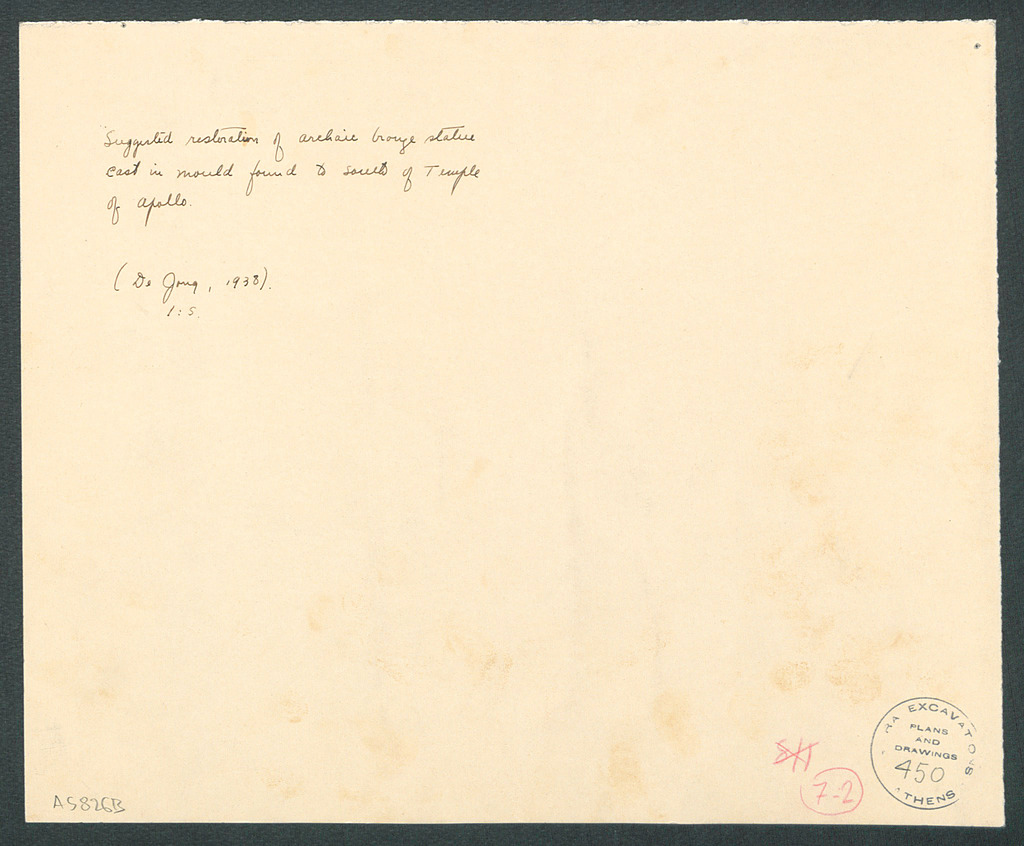 Suggested restoration of archaic bronze statue
cast in mould found to south of Temple
of Apollo.
(De Jong, 1938).
1:5.
RA EXCAVATIONS
PLANS
AND
DRAWINGS
450
THENS
7-2
AS826B